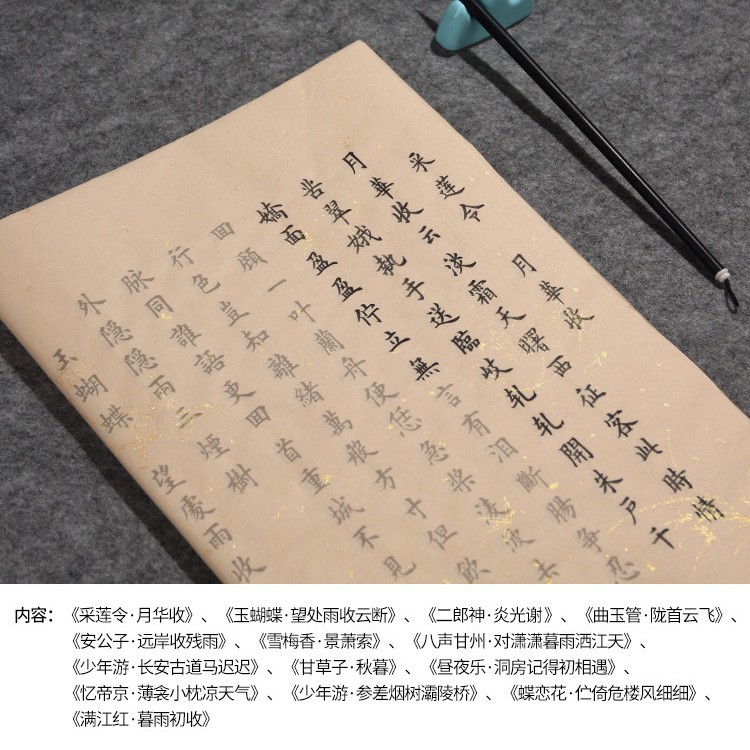 采莲令 月華收
月華收云淡霜天曙西征客此時情
苦翠娥執手送臨歧轧轧開朱户千
嬌面盈盈佇立無言有泪斷腸争忍
回顧一叶蘭舟便恁急桨淩波去
行色豈知離緒萬般方寸但飲
脉同誰語更回首重城不見
外隱隱兩三煙樹
玉蝴蝶 望處雨收
内容：《采莲令·月华收》、《玉蝴蝶·望处雨收云断》、《二郎神·炎光谢》、《曲玉管·陇首云飞》、
《安公子·远岸收残雨》、《雪梅香·景萧索》、《八声甘州·对潇潇暮雨洒江天》、
《少年游·长安古道马迟迟》、《甘草子·秋暮》、《昼夜乐·洞房记得初相遇》、
《忆帝京·薄衾小枕凉天气》、《少年游·参差烟树灞陵桥》、《蝶恋花·伫倚危楼风细细》、
《满江红·暮雨初收》